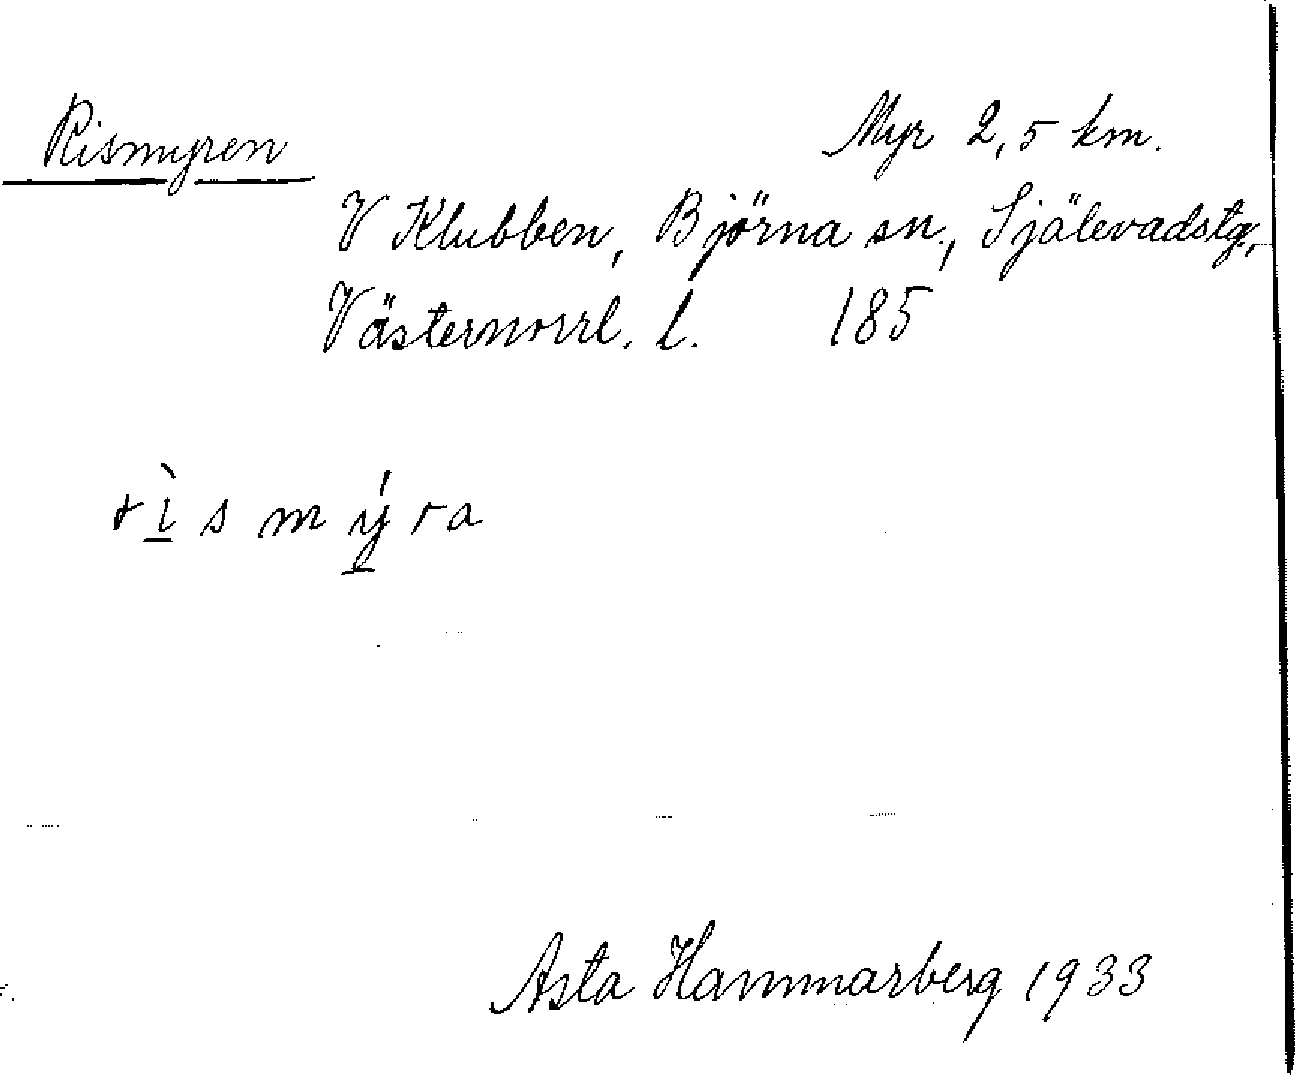 Rismyren Myr 2,5 km.
V Klubben, Björna sn., Själevadstg,
Västernorrl. l. 185
rìsmýra
Asta Hammarberg 1933